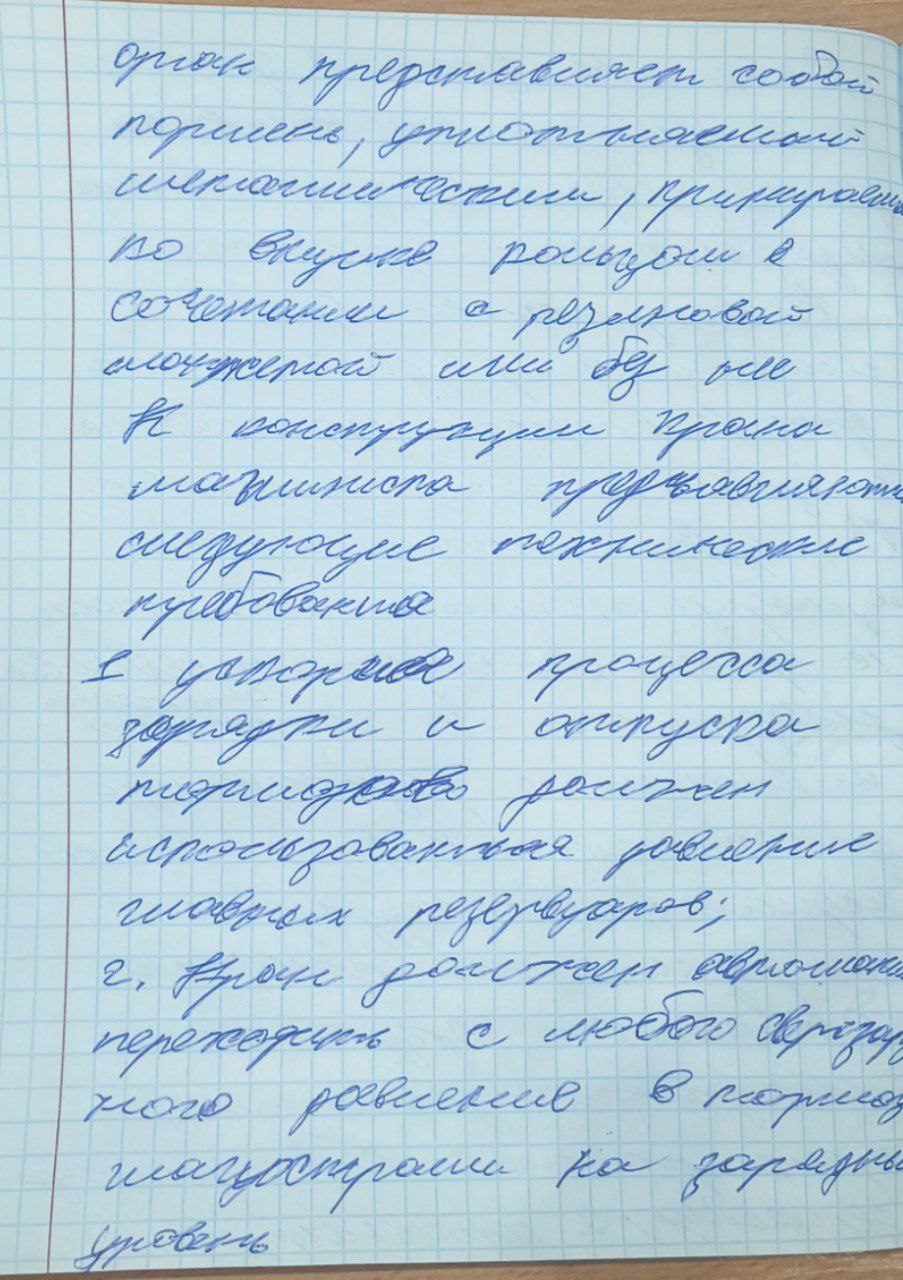 орган представляет собой
поршень, уплотняемый
металлическим, притираемы
по втулке кольцом в
сочетании с резиновой
манжетой или без нее
К конструкции крана
машиниста предъявляют
следующие технические
требования
1 ускорния процесса
зарядки и отпуска
тормозов должен
использоваться давление
главных резервуаров;
2. Кран должен автомати
переходить с любого сверхзар
ного давление в тормоз
магистрали на зарядны
уровень